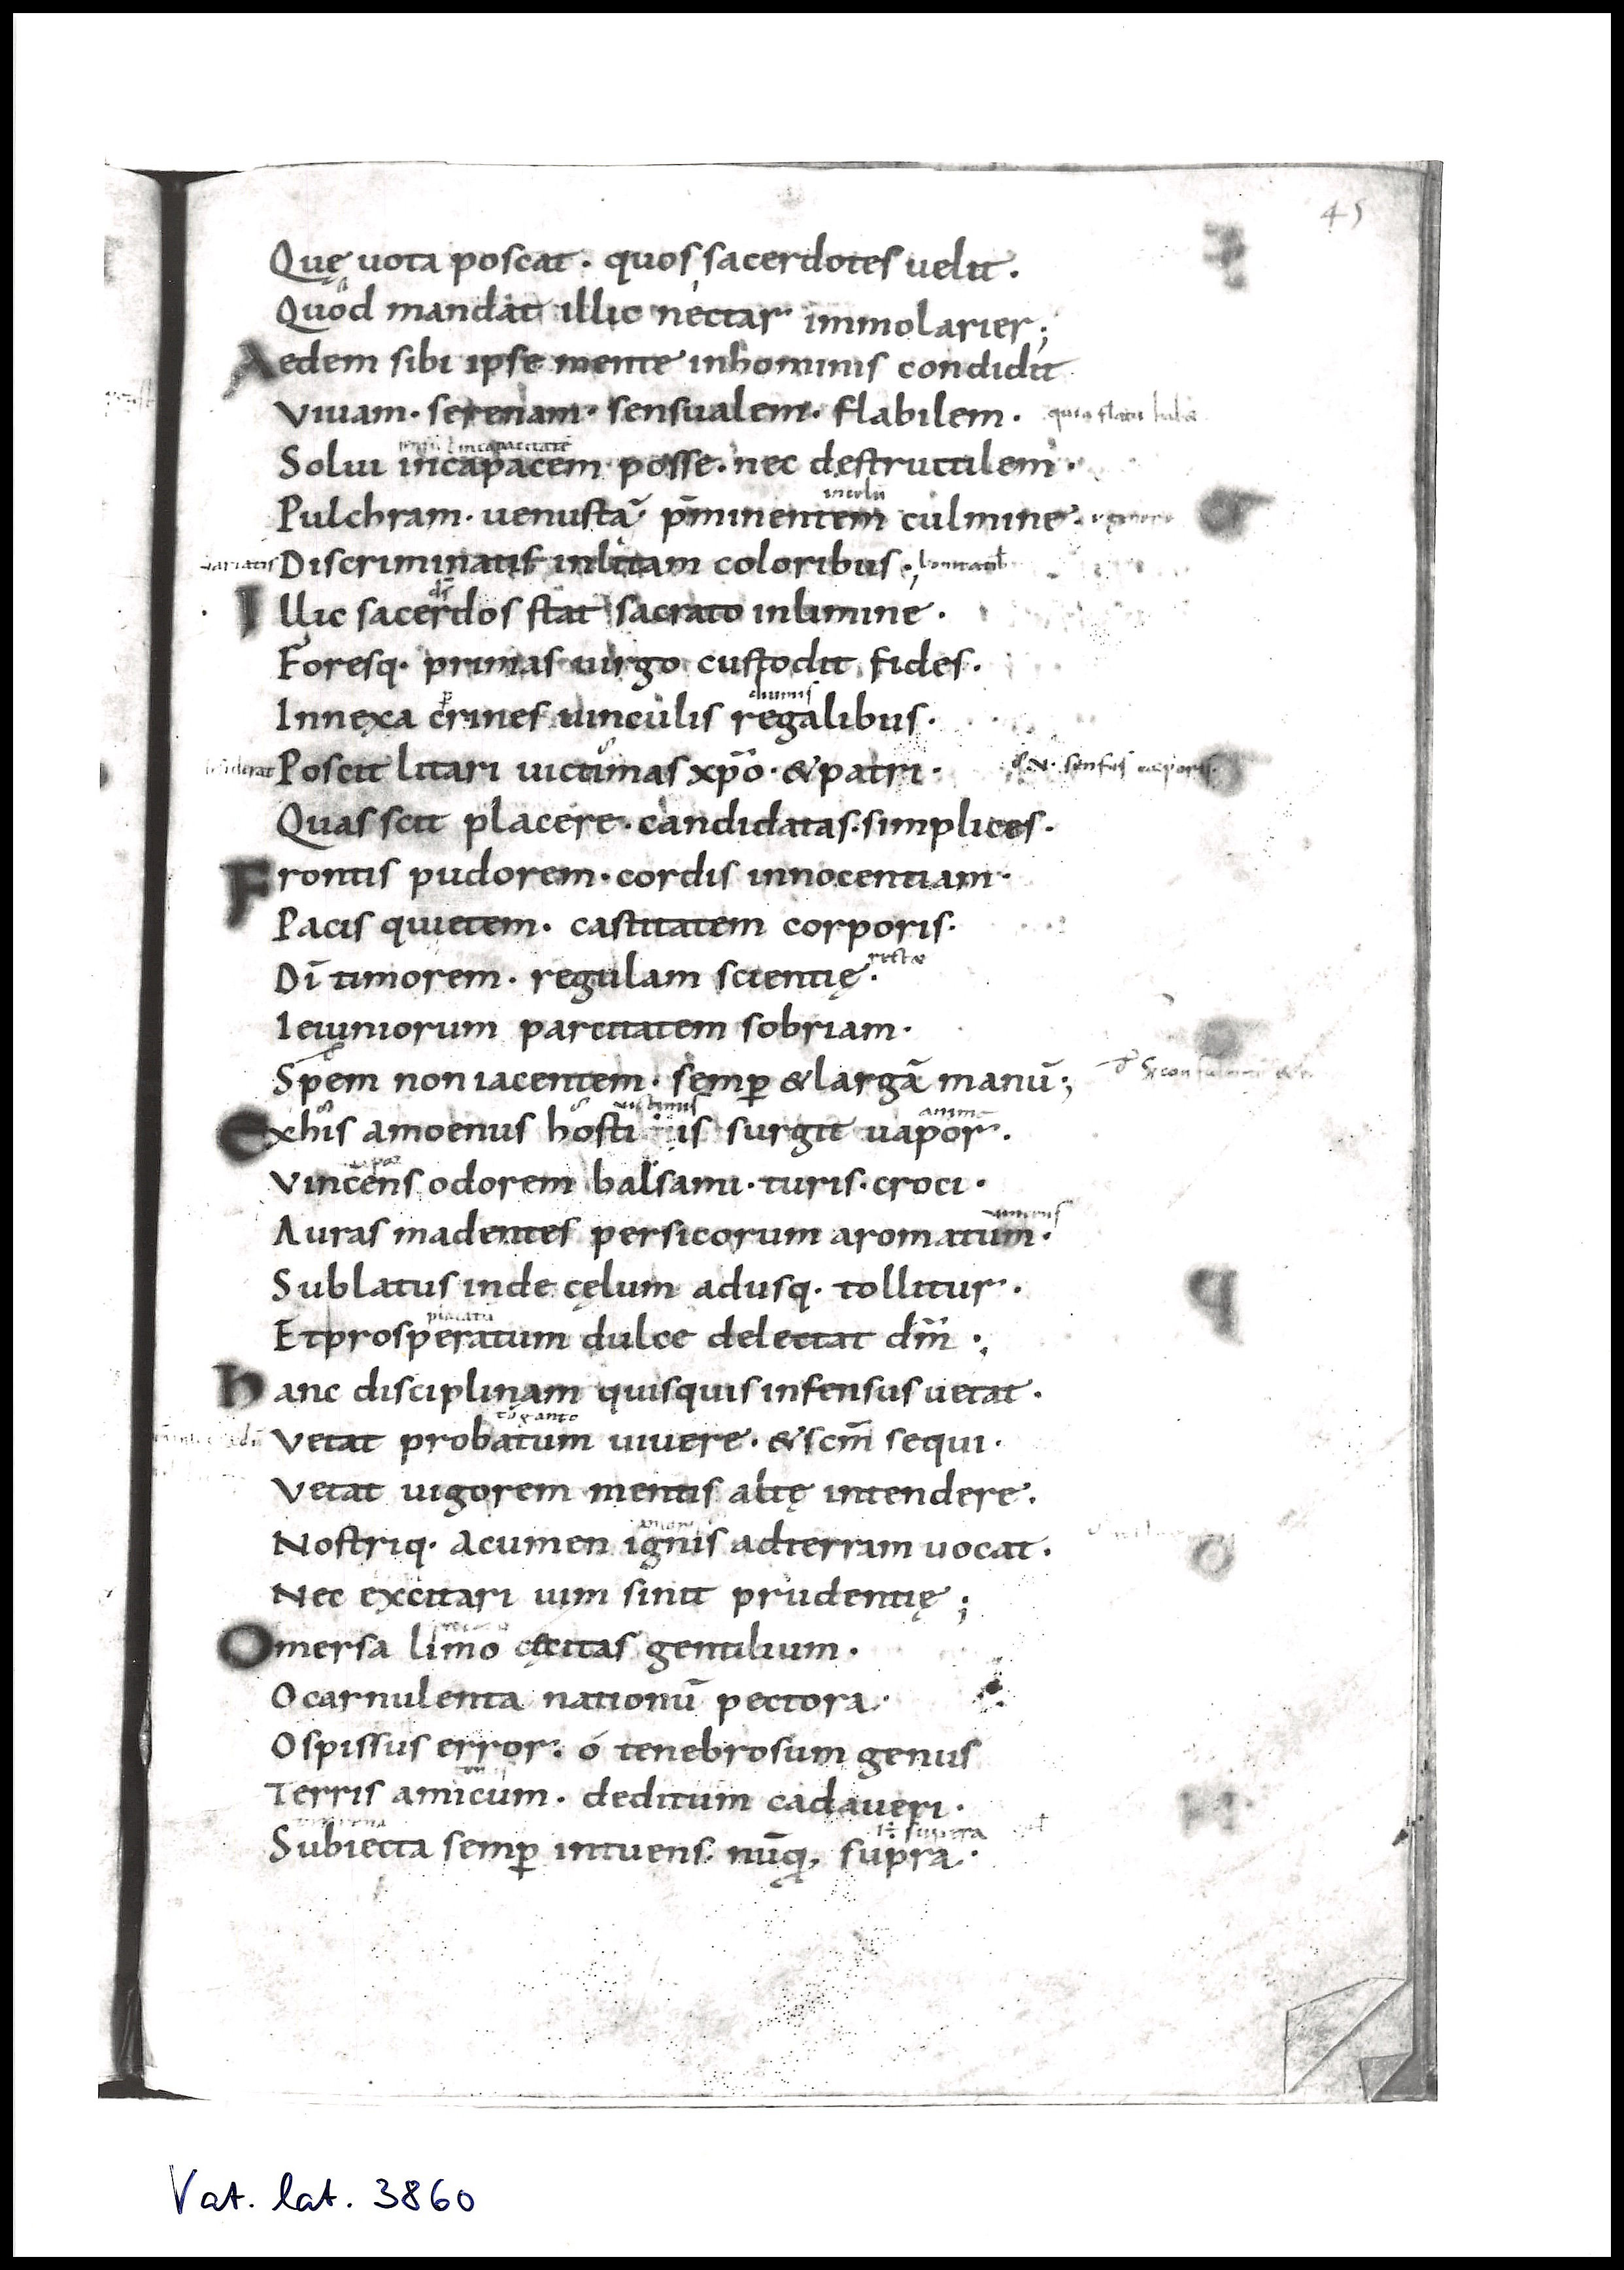 45
Quę uota poscat · quos sacerdotes uelit ·
Quod mandat illic nectar immolarier ;
Aedem sibi ipse mente inhominis condidit
Viuam · serenam · sensualem · flabilem · quia flatu
Solui incapacem posse · nec destructilem ·
incolū
Pulchram · uenustā p̄minentem culmine ·
uariatis Discriminatis inlitam coloribus ;
Illic sacerdos stat sacrato inlimine ·
Foresq· primas uirgo custodit fides ·
diuinis
Innexa crines uinculis regalibus ·
Poscit litari uictimas xp̄o · & patri · sensus corporis
Quas scit placere · candidatas · simplices ·
Frontis pudorem · cordis innocentiam ·
Pacis quietem · castitatem corporis ·
rectae
Dī timorem · regulam scientię ·
Ieiuniorum parcitatem sobriam ·
Spem non iacentem · semꝑ & largā manū ;
uictimis
Exhis amoenus hostiis surgit uapor ·
Vincens odorem balsami · turis · croci ·
Auras madentes persicorum aromatum ·
Sublatus inde cęlum adusq· tollitur ·
placatū
Etprosperatum dulce delectat dm̄ ;
Hanc disciplinam quisquis infensus uetat ·
Vetat probatum uiuere · & scm̄ sequi ·
Vetat uigorem mentis altę intendere ·
Nostriq· acumen ignis adterram uocat ·
Nec excitari uim sinit prudentię ;
O mersa limo cęcitas gentilium ·
O carnulenta nationū pectora ·
O spissus error · ó tenebrosum genus
Terris amicum · deditum cadaueri ·
supera
Subiecta semꝑ intuens · nūq supra ·
Vat. lat. 3860